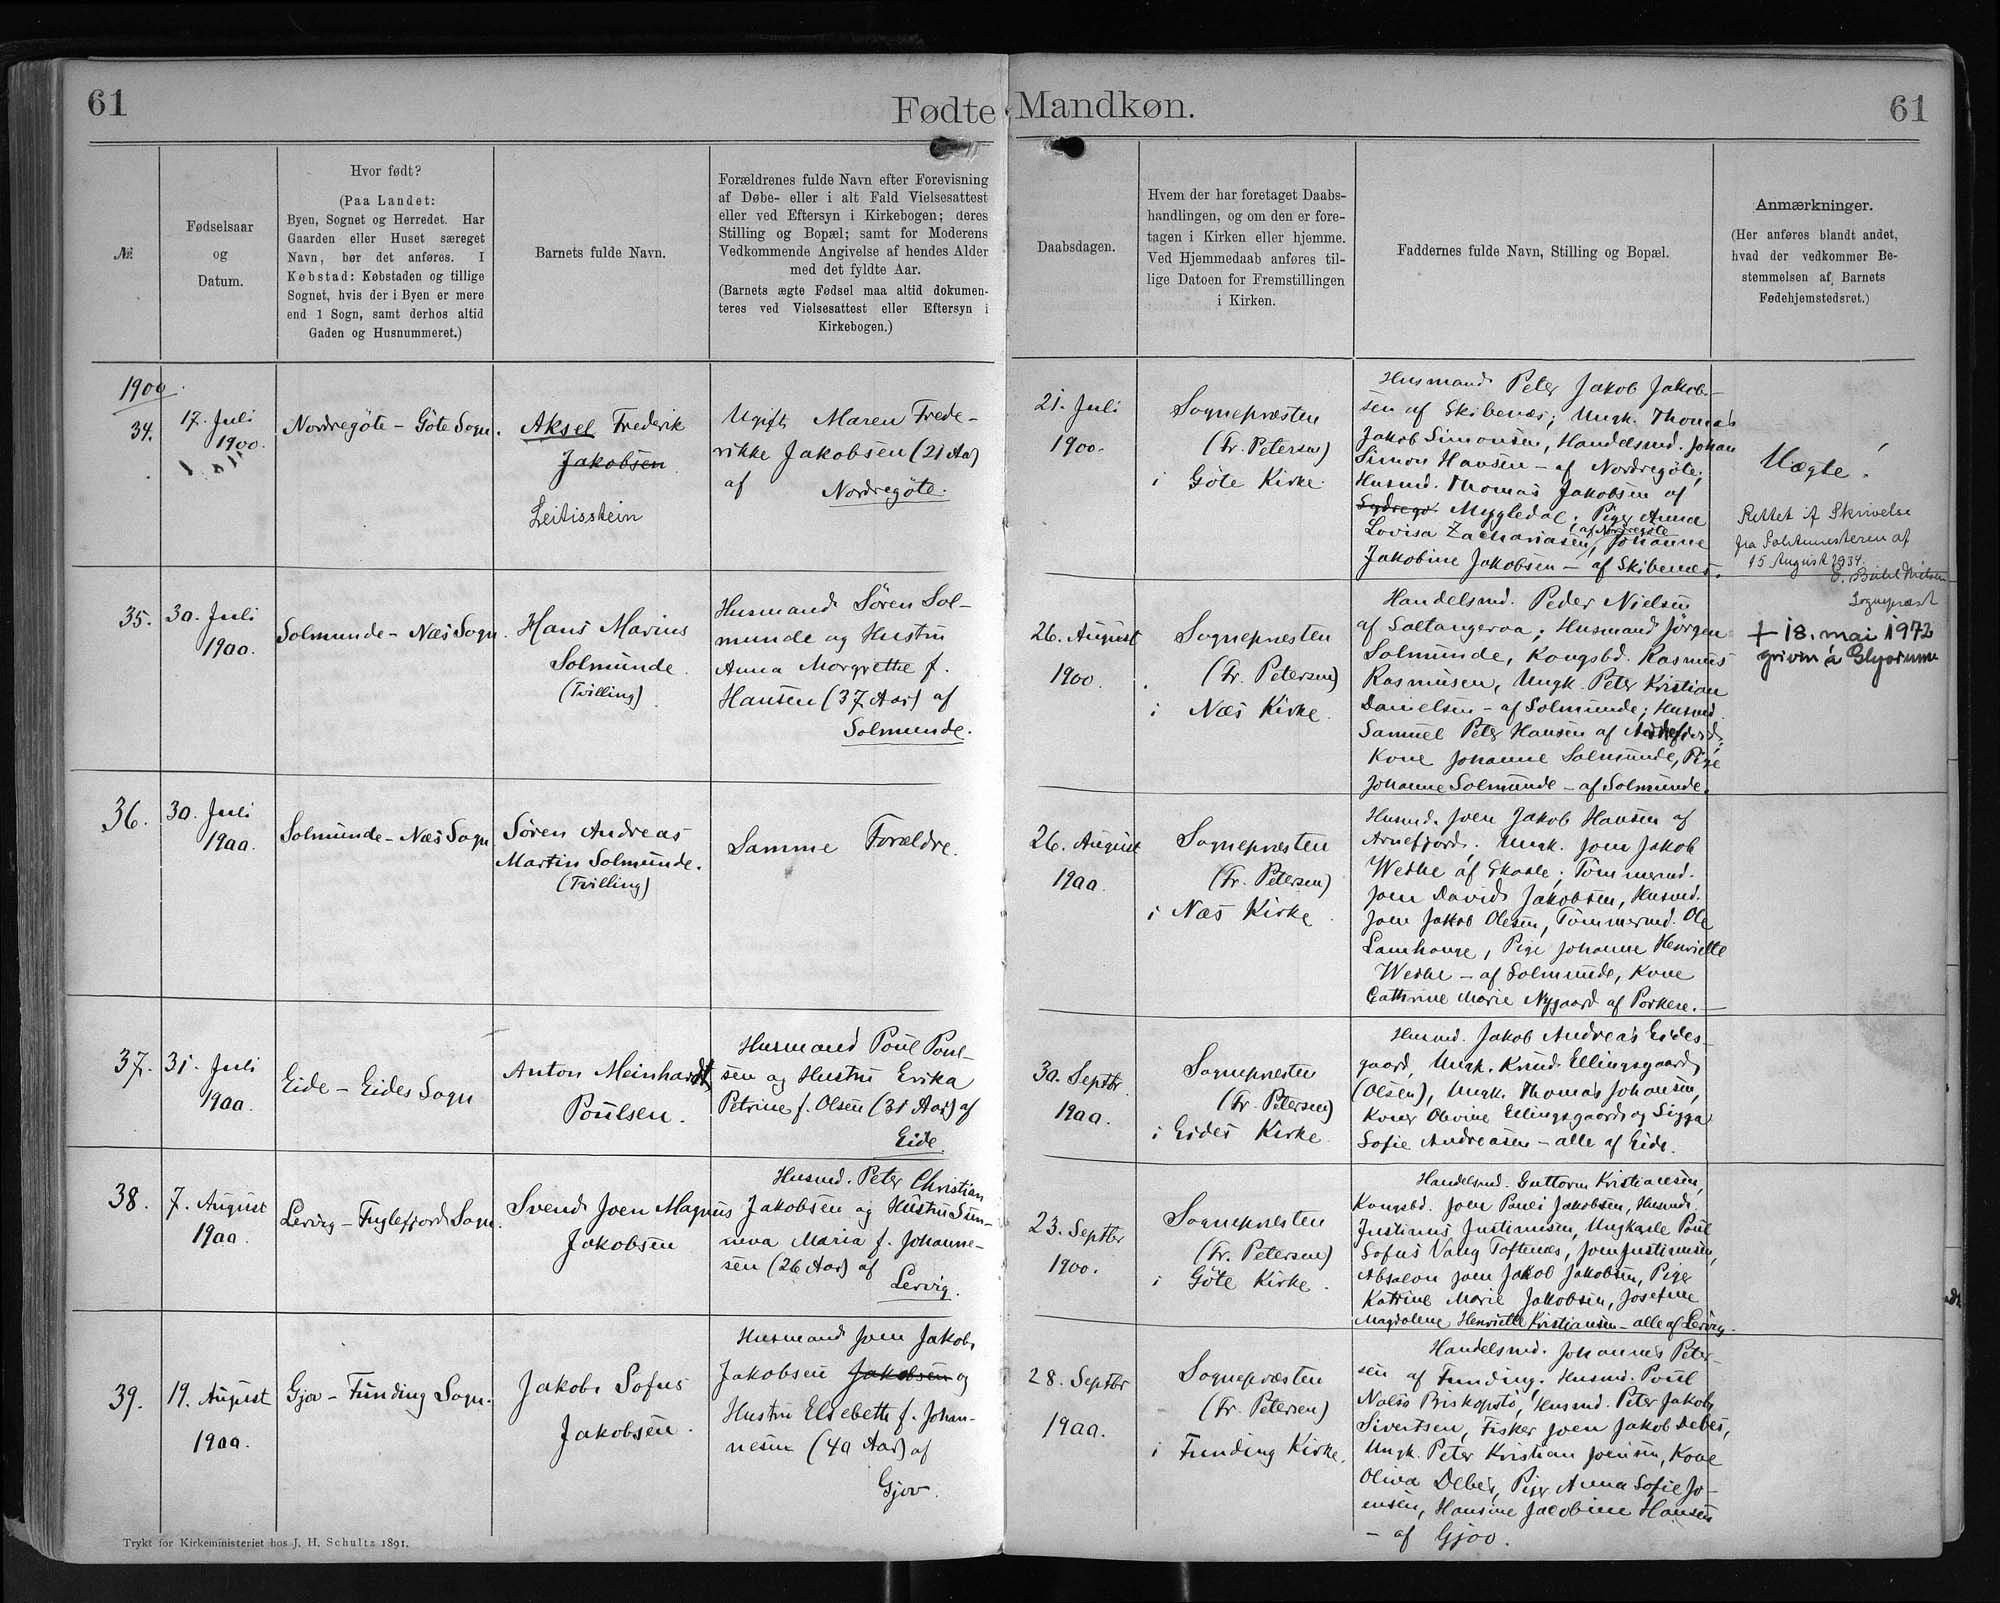 61
Fødte Mandkøn.
61
№
Fødselsaar
og
Datum.
Hvor født?
(Paa Landet:
Byen, Sognet og Herredet. Har
Gaarden eller Huset særeget
Navn, bør det anføres. I
Købstad: Købstaden og tillige
Sognet, hvis der i Byen er mere
end 1 Sogn, samt derhos altid
Gaden og Husnummeret.)
Barnets fulde Navn.
Forældrenes fulde Navn efter Forevisning
af Døbe- eller i alt Fald Vielsesattest
eller ved Eftersyn i Kirkebogen; deres
Stilling og Bopæl; samt for Moderens
Vedkommende Angivelse af hendes Alder
med det fyldte Aar.
(Barnets ægte Fødsel maa altid dokumen-
teres ved Vielsesattest eller Eftersyn i
Kirkebogen.)
Daabsdagen.
Hvem der har foretaget Daabs-
handlingen, og om den er fore-
tagen i Kirken eller hjemme.
Ved Hjemmedaab anføres til-
lige Datoen for Fremstillingen
i Kirken.
Faddernes fulde Navn, Stilling og Bopæl.
Anmærkninger.
(Her anføres blandt andet,
hvad der vedkommer Be-
stemmelsen af Barnets
Fødehjemstedsret.)
1900
34.
17. Juli
1900.
Nordregöte - Göte Sogn.
Aksel Frederik
Jakobsen
Leitisstein
Ugift Maren Frede-
rikke Jakobsen (21 Aar)
af Nordregöte.
21. Juli
1900.
Sognepræsten
(Fr. Petersen)
i Göte Kirke.
Husmand Peter Jakob Jakob-
sen af Skibenæs; Ungk. Thomas
Jakob Simonsen, Handelsmd. Johan
Simon Hansen - af Nordregöte;
Husmd. Thomas Jakobsen af
Mygledal; Piger Anna
Lovisa Zachariasen (af Nordregöte), Johanne
Jakobine Jakobsen - af Skibenæs.
Uægte.
Rettet if Skrivelse
fra Politimesteren af
15 August 1934.
Sognepræst
35.
30. Juli
1900.
Solmunde - Næs Sogn.
Hans Marius
Solmunde
(Tvilling)
Husmand Søren Sol-
munde og Hustru
Anna Margrethe f.
Hansen (37 Aar) af
Solmunde.
26. August
1900.
Sognepræsten
(Fr. Petersen)
i Næs Kirke.
Handelsmd. Peder Nielsen
af Saltangeraa; Husmand Jörgen
Solmunde, Kongsbd. Rasmus
Rasmusen, Ungk. Peter Kristian
Danielsen - af Solmunde; Husmd.
Samuel Peter Hansen af
Kone Johanne Solmunde, Pige
Johanne Solmunde - af Solmunde.
+ 18. mai 1972
grivin á Glyvrum
36.
30. Juli
1900.
Solmunde - Næs Sogn
Søren Andreas
Martin Solmunde.
(Tvilling)
Samme Forældre.
26. August
1900.
Sognepræsten
(Fr. Petersen)
i Næs Kirke.
Husmd. Joen Jakob Hansen af
Arnefjord. Ungk. Joen Jakob
Weihe af Skaale; Tömmermd.
Joen David Jakobsen, Husmd.
Joen Jakob Olesen, Tömmermd. Ole
Lamhauge, Pige Johanne Henriette
Weihe - af Solmunde, Kone
Cathrine Marie Nygaard af Porkere. -
37.
31. Juli
1900.
Eide - Eides Sogn
Anton Meinhardt
Poulsen.
Husmand Poul Poul-
sen og Hustru Erika
Petrine f. Olsen (31 Aar) af
Eide.
30. Septbr
1900.
Sognepræsten
(Fr. Petersen)
i Eides Kirke.
Husmd. Jakob Andreas Eides-
gaard, Ungk. Knud Ellingsgaard
(Olsen), Ungk. Thomas Johansen,
Koner Olevine Ellingsgaard og Sigga
Sofie Andreasen - alle af Eide.
38.
7. August
1900.
Lervig - Fuglefjord Sogn.
Svend Joen Magnus
Jakobsen
Husmd. Peter Christian
Jakobsen og Hustru Sun-
neva Maria f. Johanne-
sen (26 Aar) af
Lervig.
23. Septbr
1900.
Sognepræsten
(Fr. Petersen)
i Göte Kirke.
Handelsmd. Guttorm Kristiansen,
Kongsbd. Joen Poul Jakobsen, Husmd.
Justinus Justinussen, Ungkarle Poul
Sofus Vang Toftenæs, Joen Justinussen,
Absalon Joen Jakob Jakobsen, Piger
Katrine Marie Jakobsen, Josefine
Magdalene Henriette Kristiansen - alle af Lervig.
39.
19. August
1900.
Gjov - Funding Sogn.
Jakob Sofus
Jakobsen.
Husmand Joen Jakob
Jakobsen Jakobsen og
Hustru Elsebeth f. Johan-
nesen (40 Aar) af
Gjov.
28. Septbr
1900.
Sognepræsten
(Fr. Petersen)
i Funding Kirke.
Handelsmd. Johannes Peter-
sen af Funding. Husmd. Poul
Nolsö Biskopstö, Husmd. Peter Jakob
Sivertsen, Fisker Joen Jakob Debes,
Ungk. Peter Kristian Joensen, Kone
Oliva Debes, Piger Anna Sofie Jo-
ensen, Hansine Jacobine Hansen
- af Gjov.
Trykt for Kirkeministeriet hos J. H. Schultz 1891.